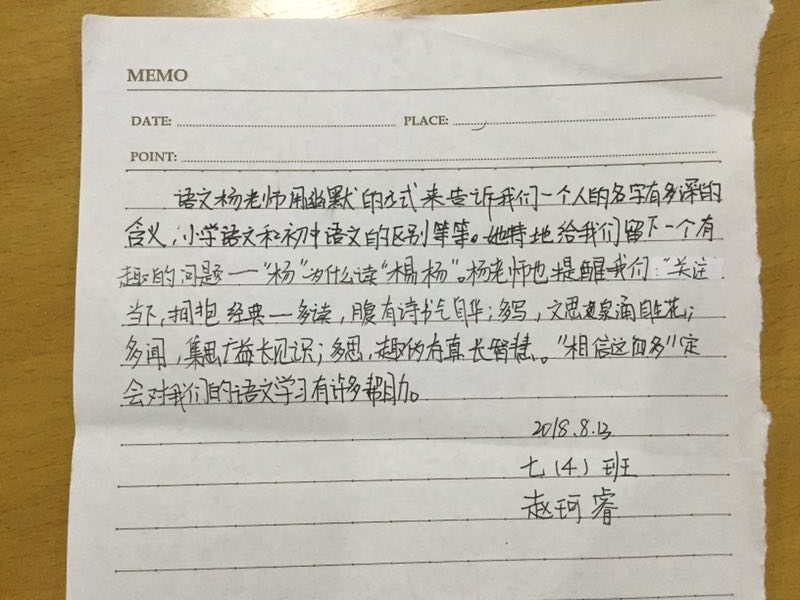 MEMO
DATE:
PLACE:
POINT:
语文杨老师用幽默的方式来告诉我们一个人的名字有多深的
含义,小学语文和初中语文的区别等等。她特地给我们留下一个有
趣的问题一“杨”为什么读“木易杨”。杨老师也提醒我们:“关注
当下,拥抱经典一多读,腹有诗书气自华;多写,文思泉涌自生花;
多闻,集思广益长见识;多思,去伪存真长智慧。”相信这四多一定
会对我们的语文学习有许多帮助。
2018.8.13
七(4)班
赵珂睿